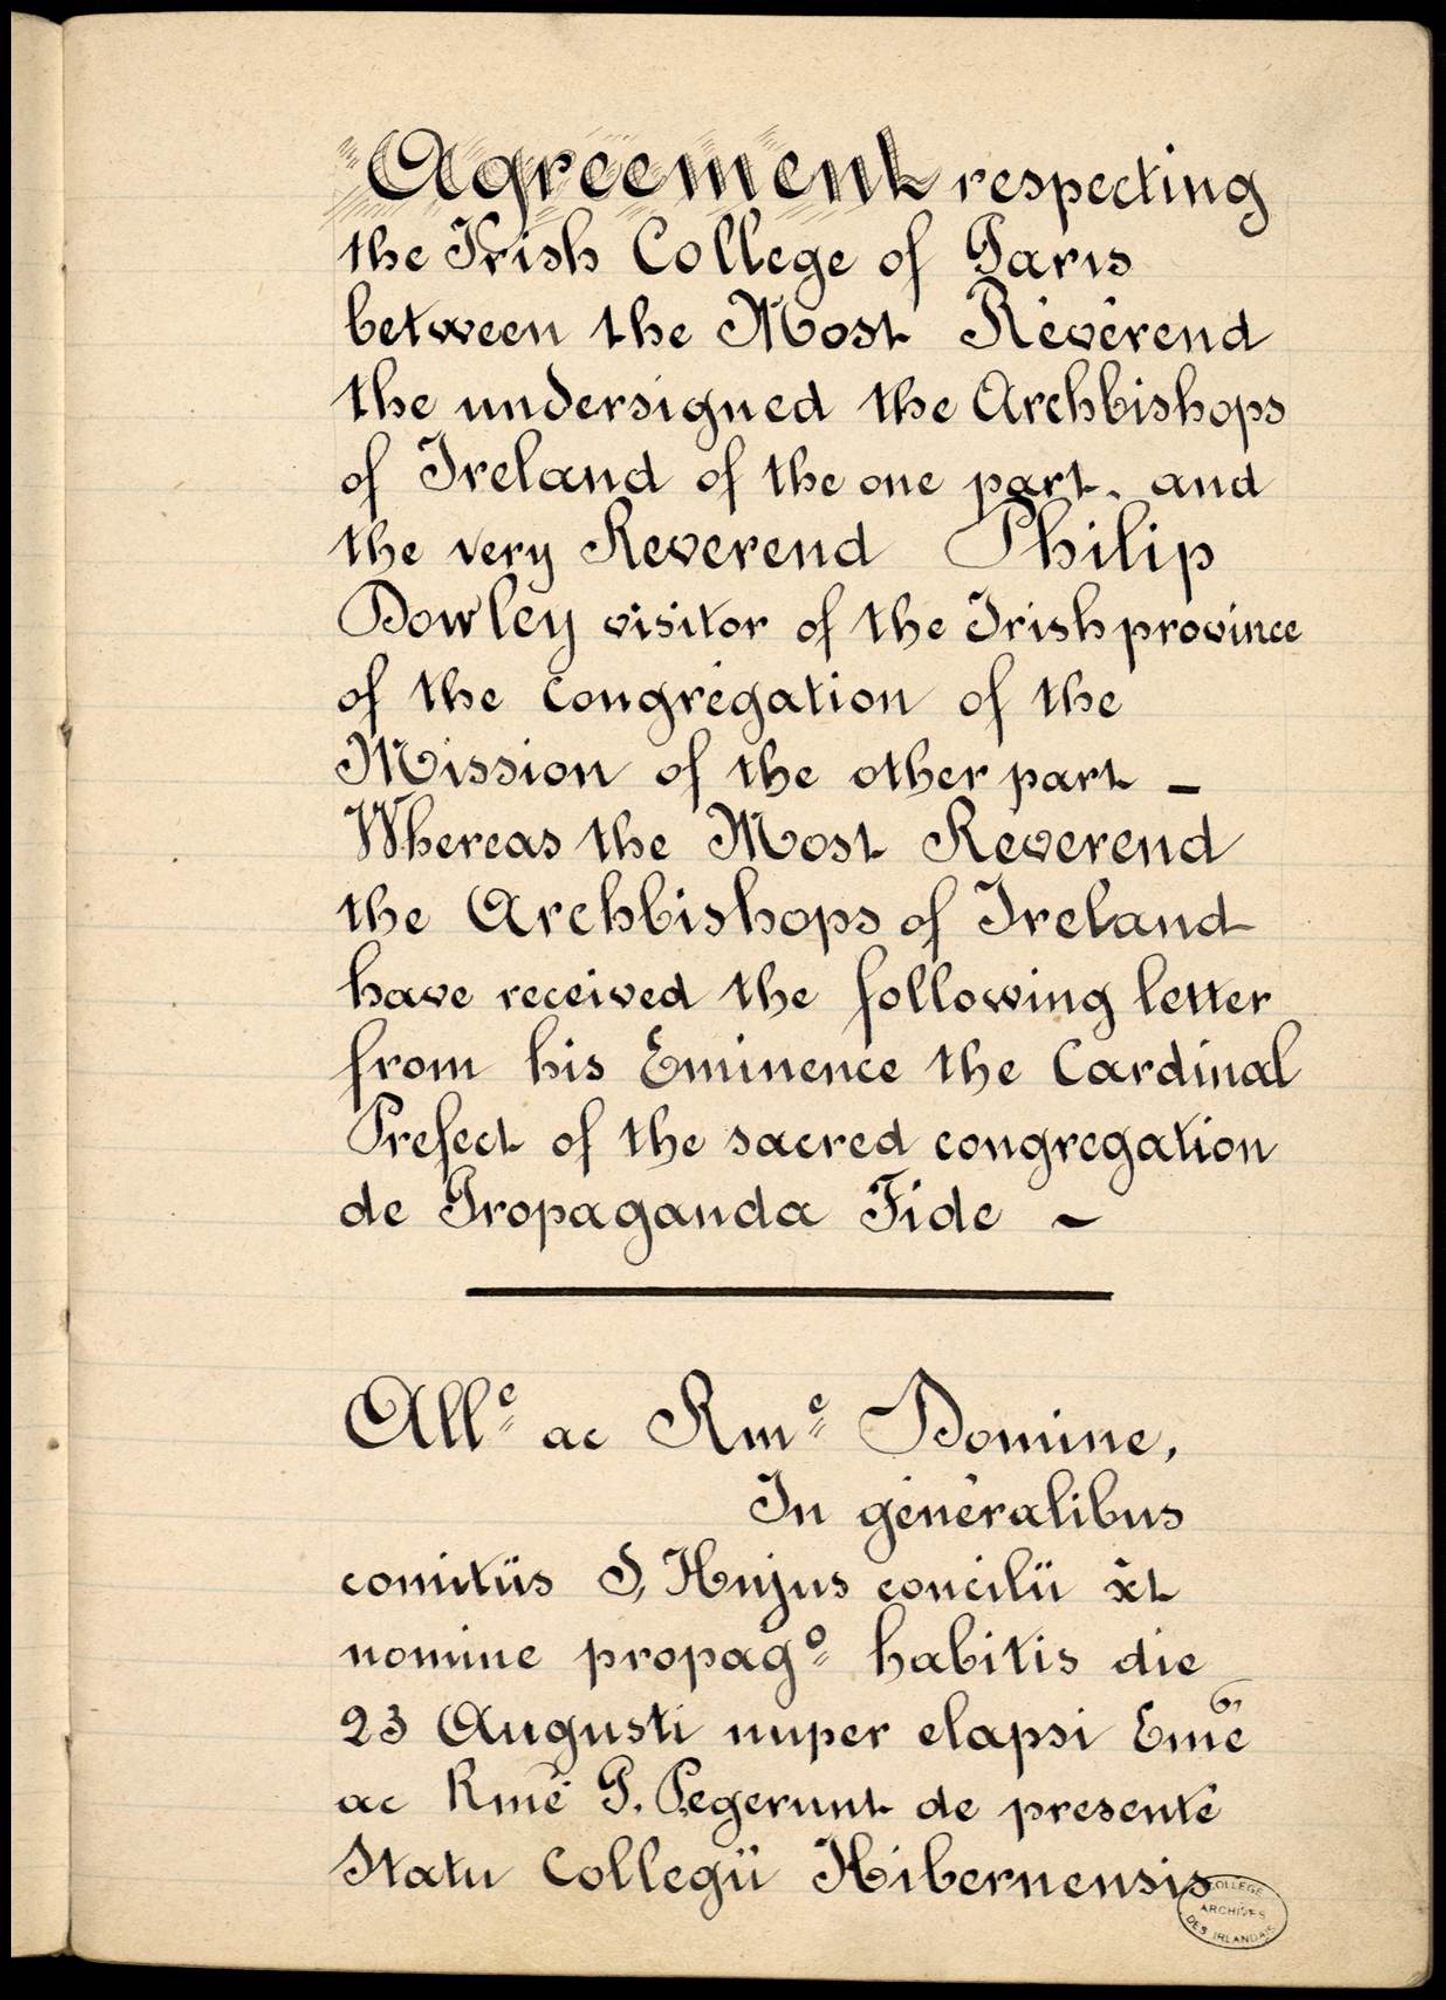 "Agreement respecting
the Irish College of Paris
between the Most Reverend
the undersigned the Archbishops
of Ireland of the one part. and
the very Reverend Philip
Dowley visitor of the Irish province
of the congregation of the
Mission of the other part –
Whereas the Most Reverend
the Archbishops of Ireland
have received the following letter
from his Eminence the Cardinal
Prefect of the sacred congregation
de Propaganda Fide –
Allᵉ ac Rmᵉ Domine,
In generalibus
comitiis S. Hujus concilii xt
nomine propagº habitis die
23 Augusti nuper elapsi Eme
ac Rme P. Pegerunt de presente
Statu Collegii Hibernensis
COLLEGE
ARCHIVES
DES IRLANDAIS